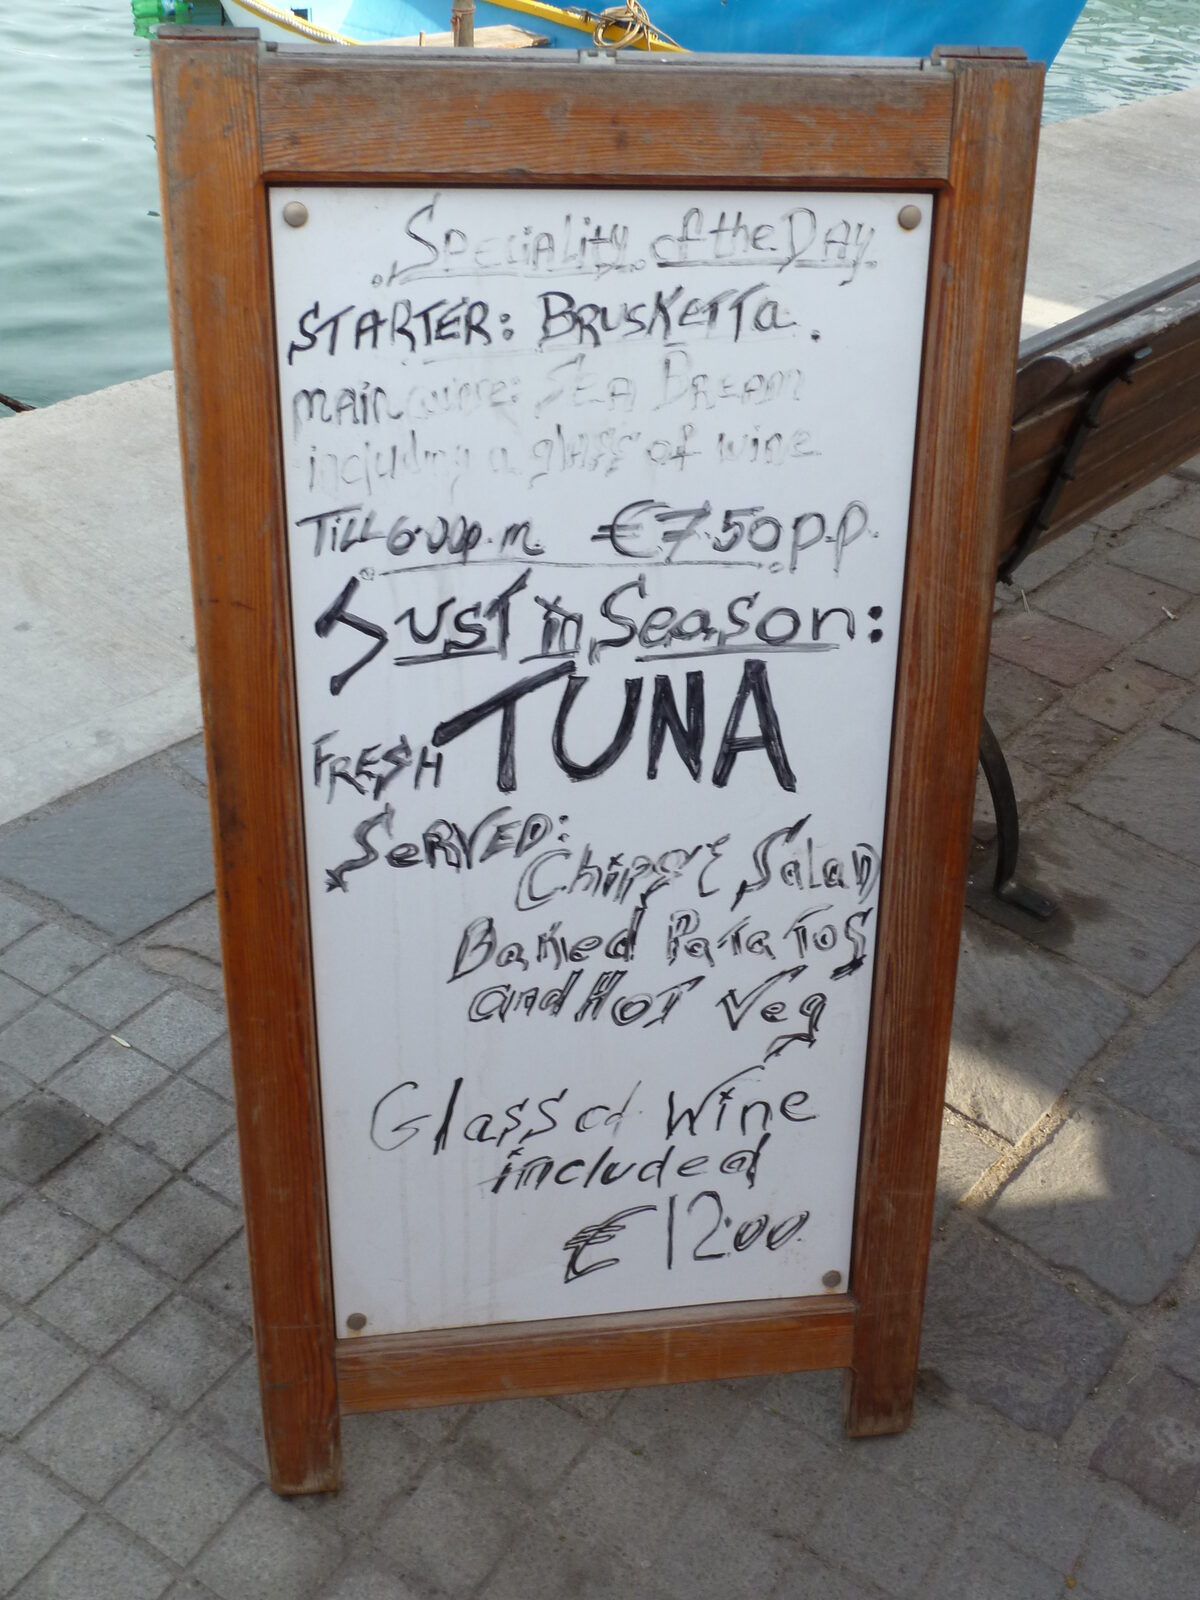 Speciality of the Day
STARTER: BRUSKETTa.
main course: SEA BREAM
including a glass of wine
TiLL 6.00p.m. €7.50 p.p.
JUST in Season:
FRESH TUNA
SeRVED:
Chips & Salad
Baked PaTaTos
and HOT Veg
Glass of Wine
included
€12.00